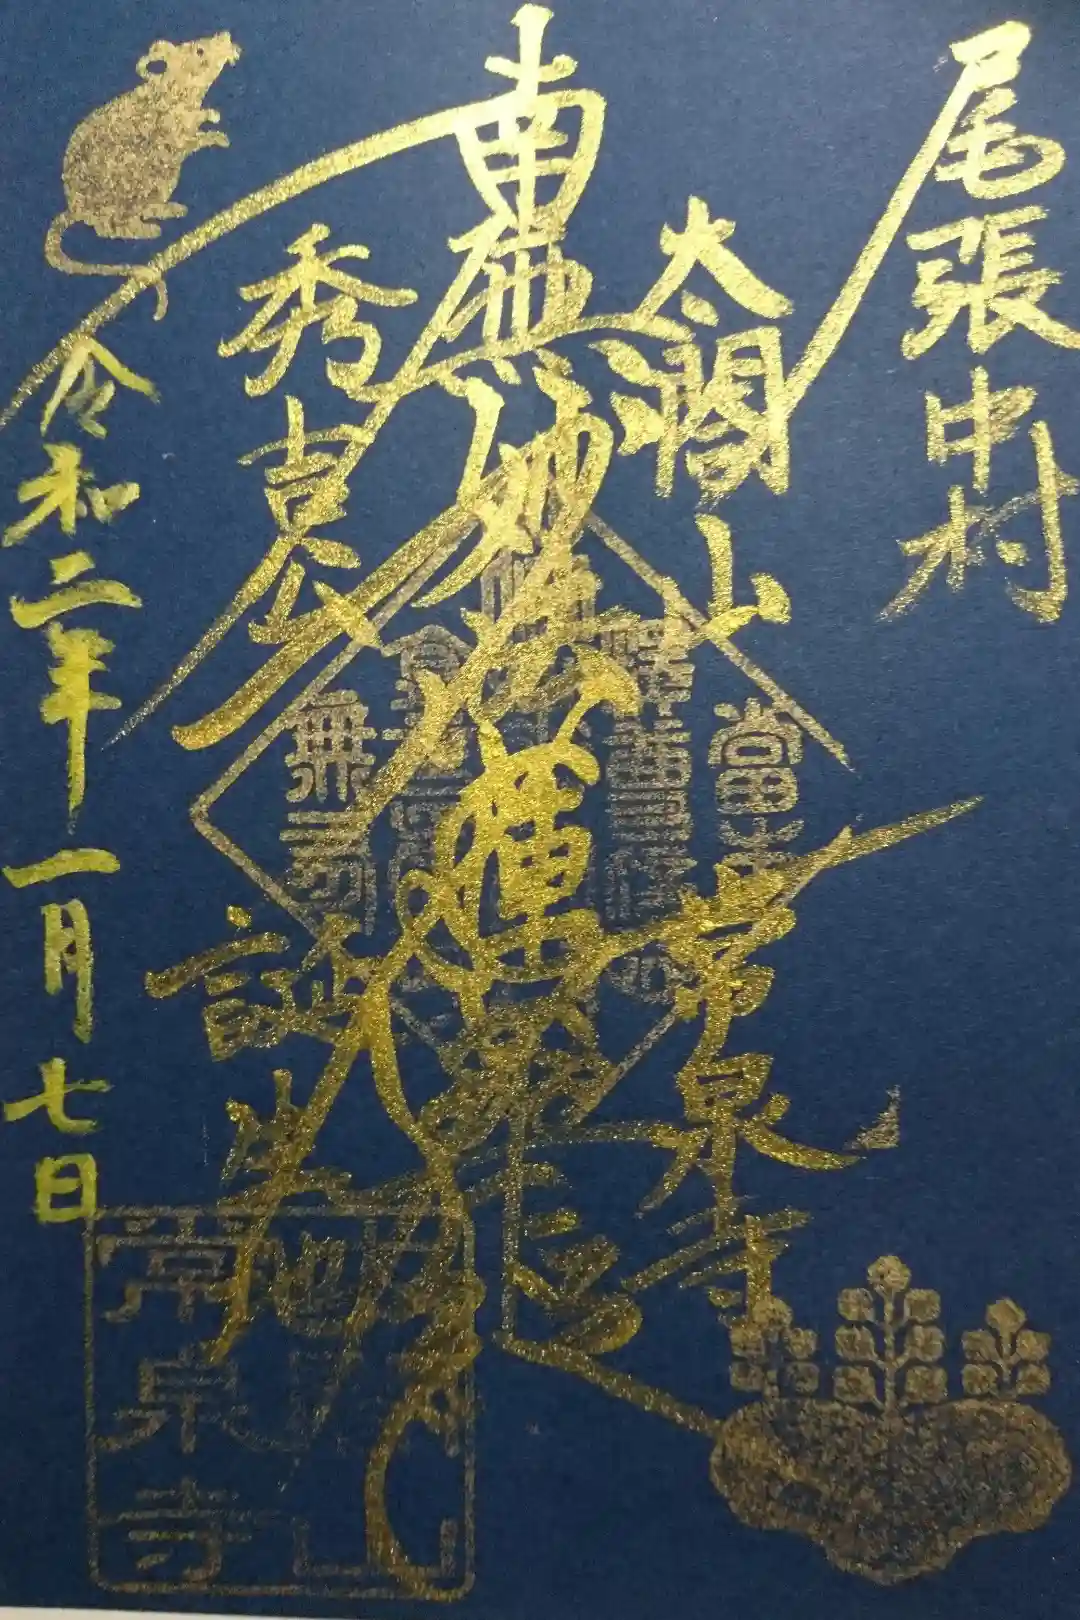 尾張中村
太閤山
常泉寺
南無妙法蓮華経
秀吉公
誕生
令和二年一月七日
常泉寺